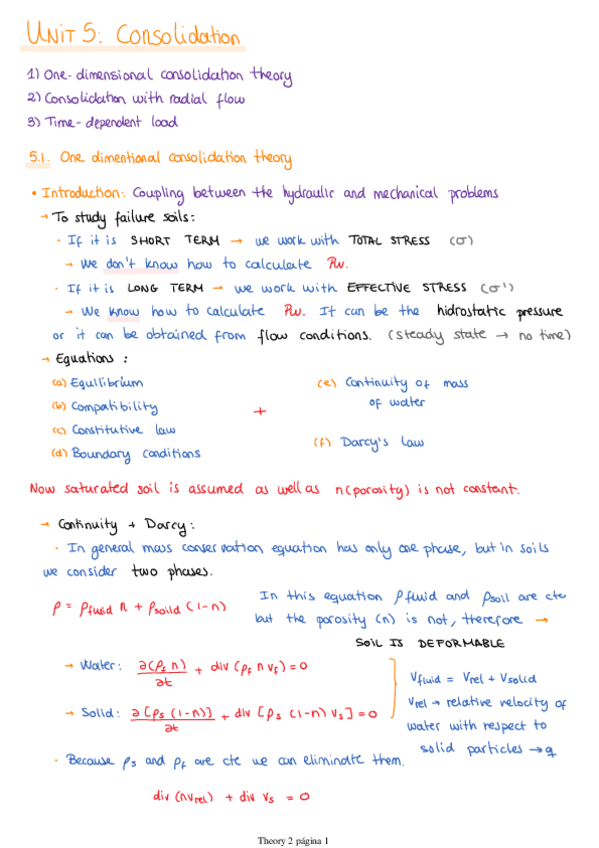 UNIT 5: Consolidation
1) One-dimensional consolidation theory
2) Consolidation with radial flow
3) Time-dependent load
5.1. One dimentional consolidation theory
• Introduction: Coupling between the hydraulic and mechanical problems
→ To study failure soils:
· If it is SHORT TERM → we work with TOTAL STRESS (σ)
→ We don't know how to calculate Pw.
· If it is LONG TERM → we work with EFFECTIVE STRESS (σ')
→ We know how to calculate Pw. It can be the hidrostatic pressure
or it can be obtained from flow conditions. (steady state → no time)
→ Equations:
(a) Equilibrium
(b) Compatibility
(c) Constitutive law
(d) Boundary conditions
+
(e) Continuity of mass
of water
(f) Darcy's law
Now saturated soil is assumed as well as n (porosity) is not constant.
→ Continuity + Darcy:
· In general mass conservation equation has only one phase, but in soils
we consider two phases.
ρ = ρfluid n + ρsoild (1-n)
In this equation ρfluid and ρsoil are cte
but the porosity (n) is not, therefore →
SOIL IS DEFORMABLE
→ Water: ∂(ρf n)/∂t + div (ρf n vf) = 0
→ Solid: ∂[ρs (1-n)]/∂t + div [ρs (1-n) vs] = 0
Vfluid = Vrel + Vsolid
Vrel → relative velocity of
water with respect to
solid particles → q
· Because ρs and ρf are cte we can eliminate them.
div (n vrel) + div vs = 0
Theory 2 página 1